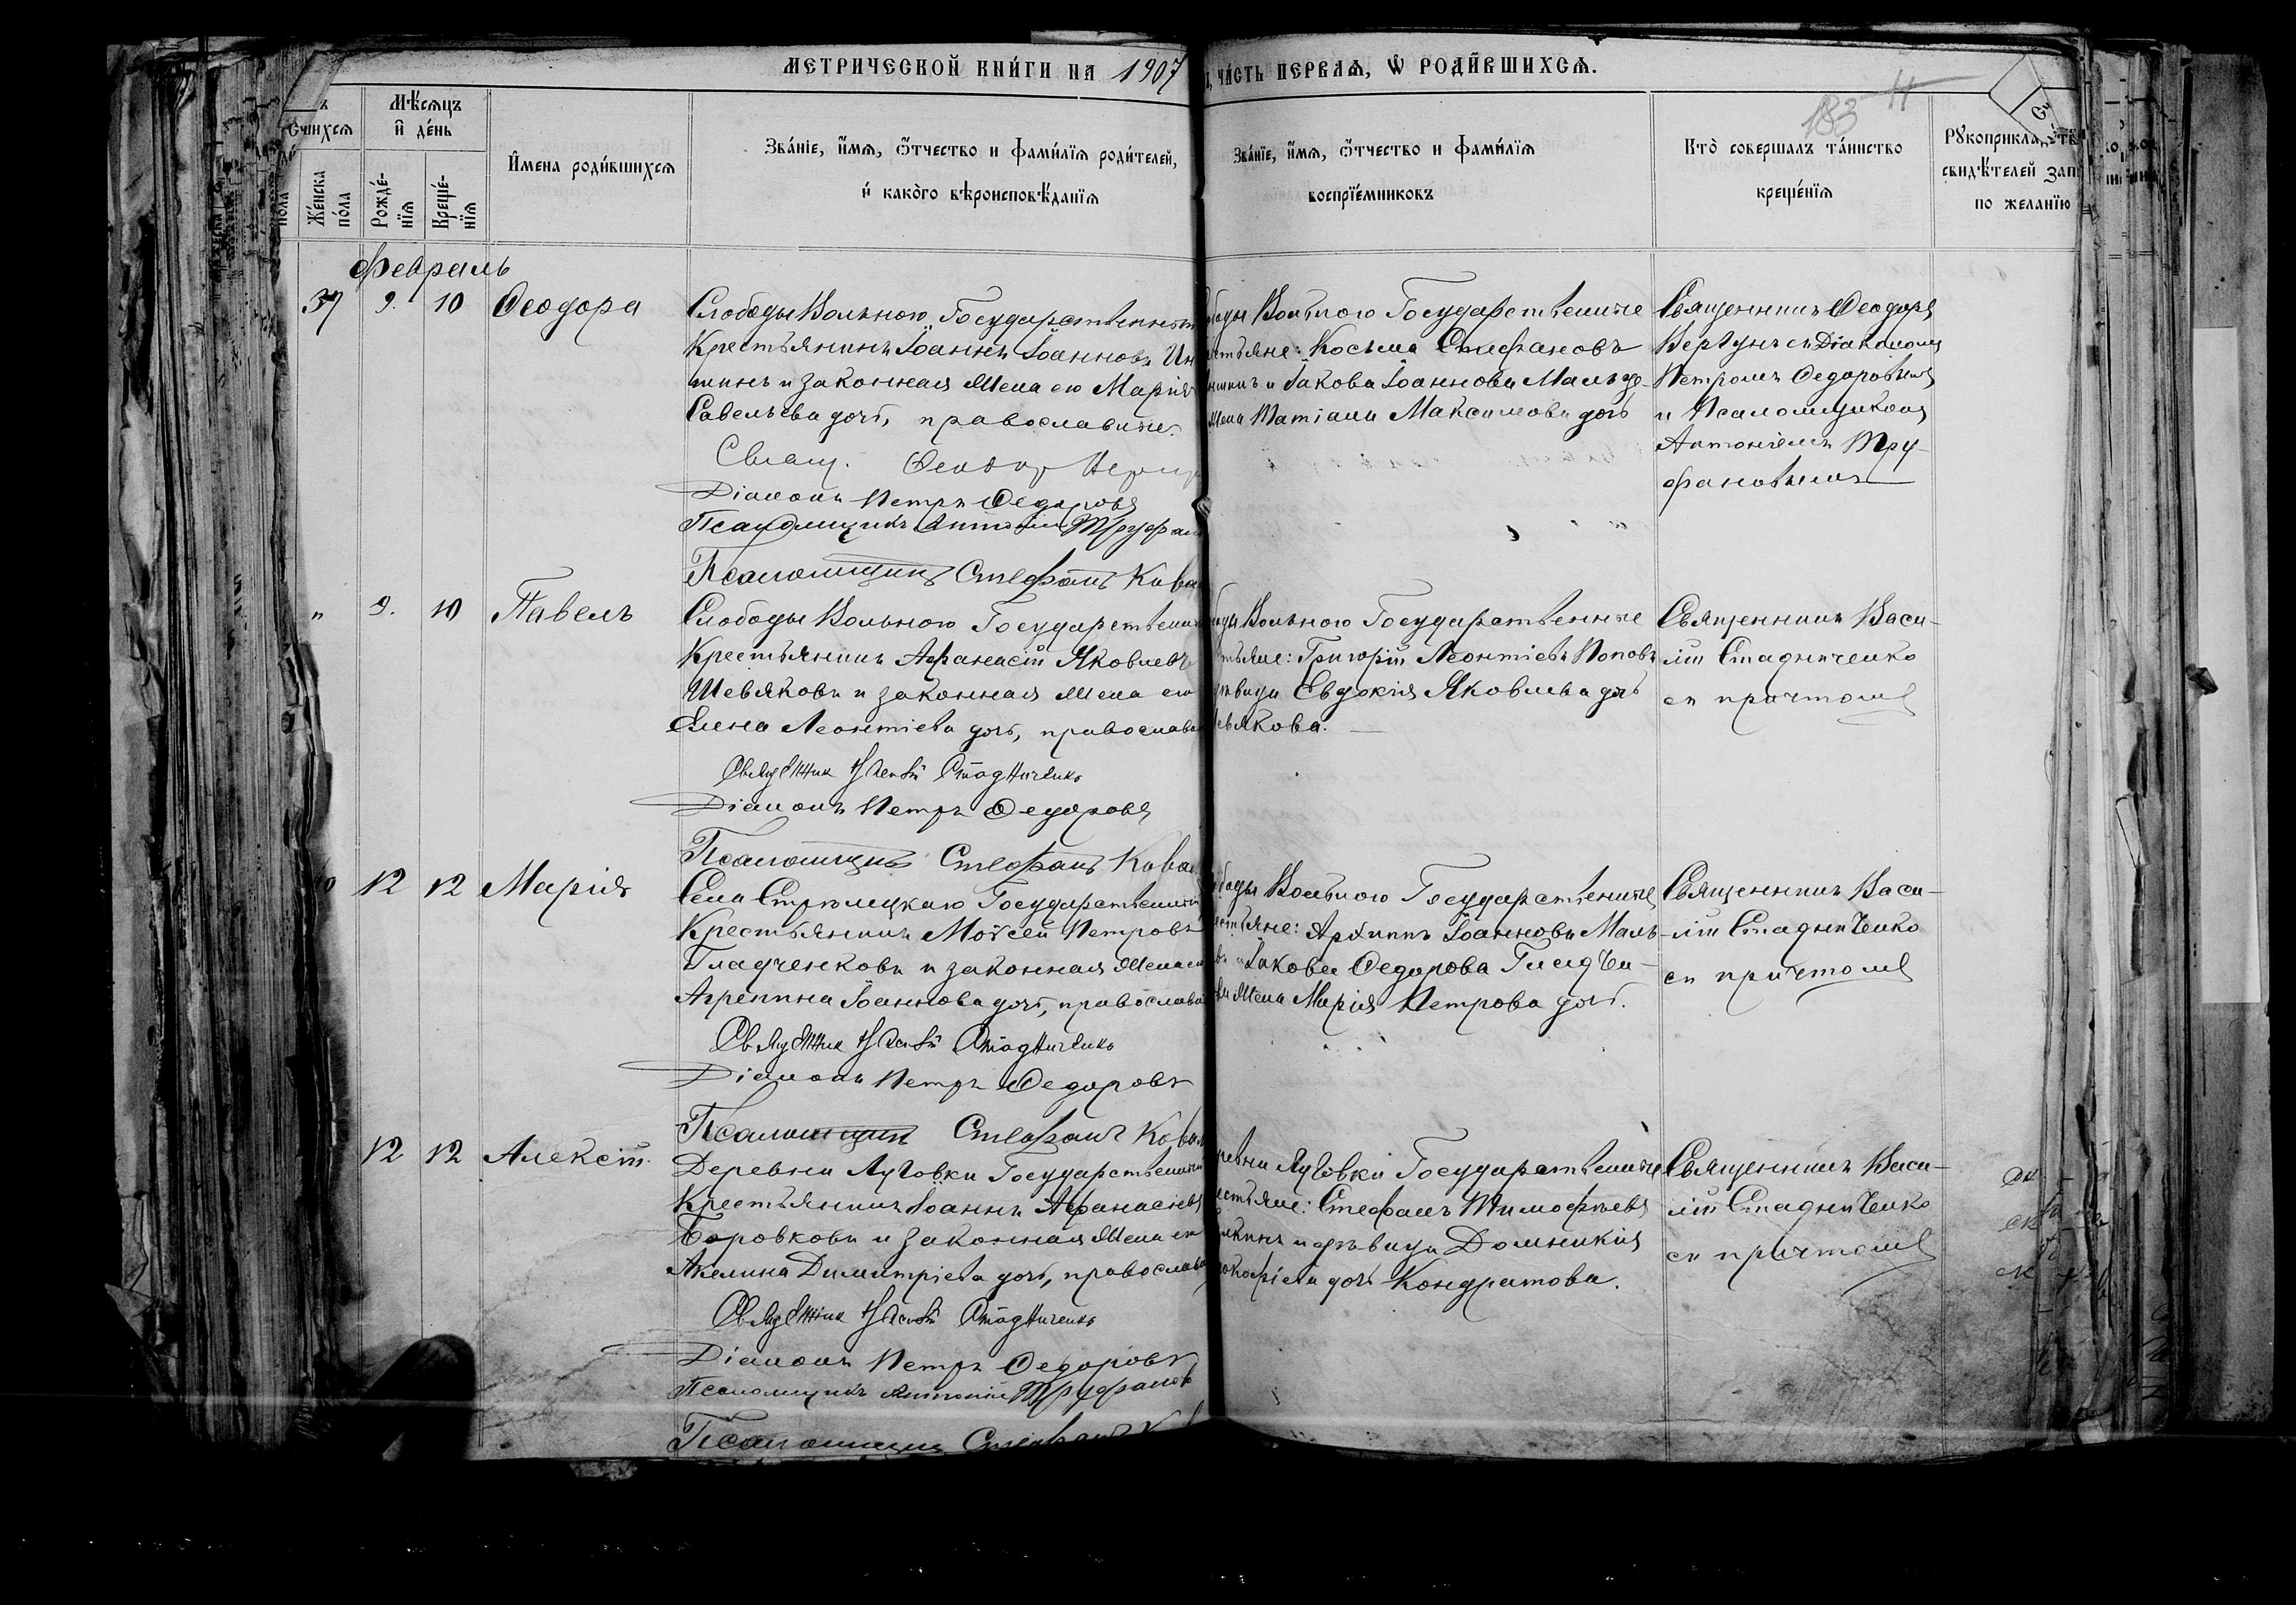 МЕТРИЧЕСКОЙ КНИГИ НА 1907
ЧАСТЬ ПЕРВАЯ, Ѡ РОДИВШИХСЯ.
183
Мѣсяцъ и день
Женска пола
Рожденія
Крещенія
Имена родившихся
Званіе, имя, отчество и фамилія родителей,
и какого вѣроисповѣданія
Званіе, имя, отчество и фамилія
воспріемниковъ
Кто совершалъ таинство
крещенія
свидѣтелей
по желанію
Февраль
37 9. 10 Ѳеодора
Слободы Вольного Государственный
Крестьянинъ Іоаннъ Іоанновъ
и законная жена его Марія
Савельева дочь, православные.
Свящ. Ѳеодор
Діаконъ Петръ Ѳедоровъ
Псаломщикъ Антоній Труфан
Псаломщикъ Стефанъ Кова
Вольного Государственные
Косьма Стефановъ
и Іакова Іоаннова
жена Татіана Максимова дочь
Священникъ Ѳеодоръ
Вергунъ съ Діакономъ
Петромъ Ѳедоровымъ
и Псаломщикомъ
Антоніемъ Тру-
фановымъ
" 9. 10 Павелъ
Слободы Вольного Государственный
Крестьянинъ Афанасій Яковлевъ
Шевяковъ и законная жена его
Елена Леонтіева дочь, православ
Священник Василій Стадниченко
Діаконъ Петръ Ѳедоровъ
Псаломщикъ Стефанъ Кова
Вольного Государственные
Григорій Леонтіевъ Поповъ
Евдокія Яковлева дочь
Священникъ Васи-
лій Стадниченко
съ причтомъ
12 12 Марія
Села Стрѣлецкаго Государственный
Крестьянинъ Моѵсей Петровъ
Гладченковъ и законная жена его
Агрепина Іоаннова дочь, православ
Священник Василій Стадниченко
Діаконъ Петръ Ѳедоровъ
Псаломщикъ Стефанъ Кова
Вольного Государственные
Архиппъ Іоанновъ Маль-
Іакова Ѳедорова
жена Марія Петрова дочь.
Священникъ Васи-
лій Стадниченко
съ причтомъ
12 12 Алексій.
Деревни Луговки Государственный
Крестьянинъ Іоаннъ Афанасіевъ
Боровковъ и законная жена его
Акелина Димитріева дочь, православ
Священник Василій Стадниченко
Діаконъ Петръ Ѳедоровъ
Псаломщикъ Антоній Труфанов
Псаломщикъ Стефанъ
Луговки Государственные
Стефанъ Тимофѣевъ
и дѣвица Домникія
дочь Кондратова.
Священникъ Васи-
лій Стадниченко
съ причтомъ